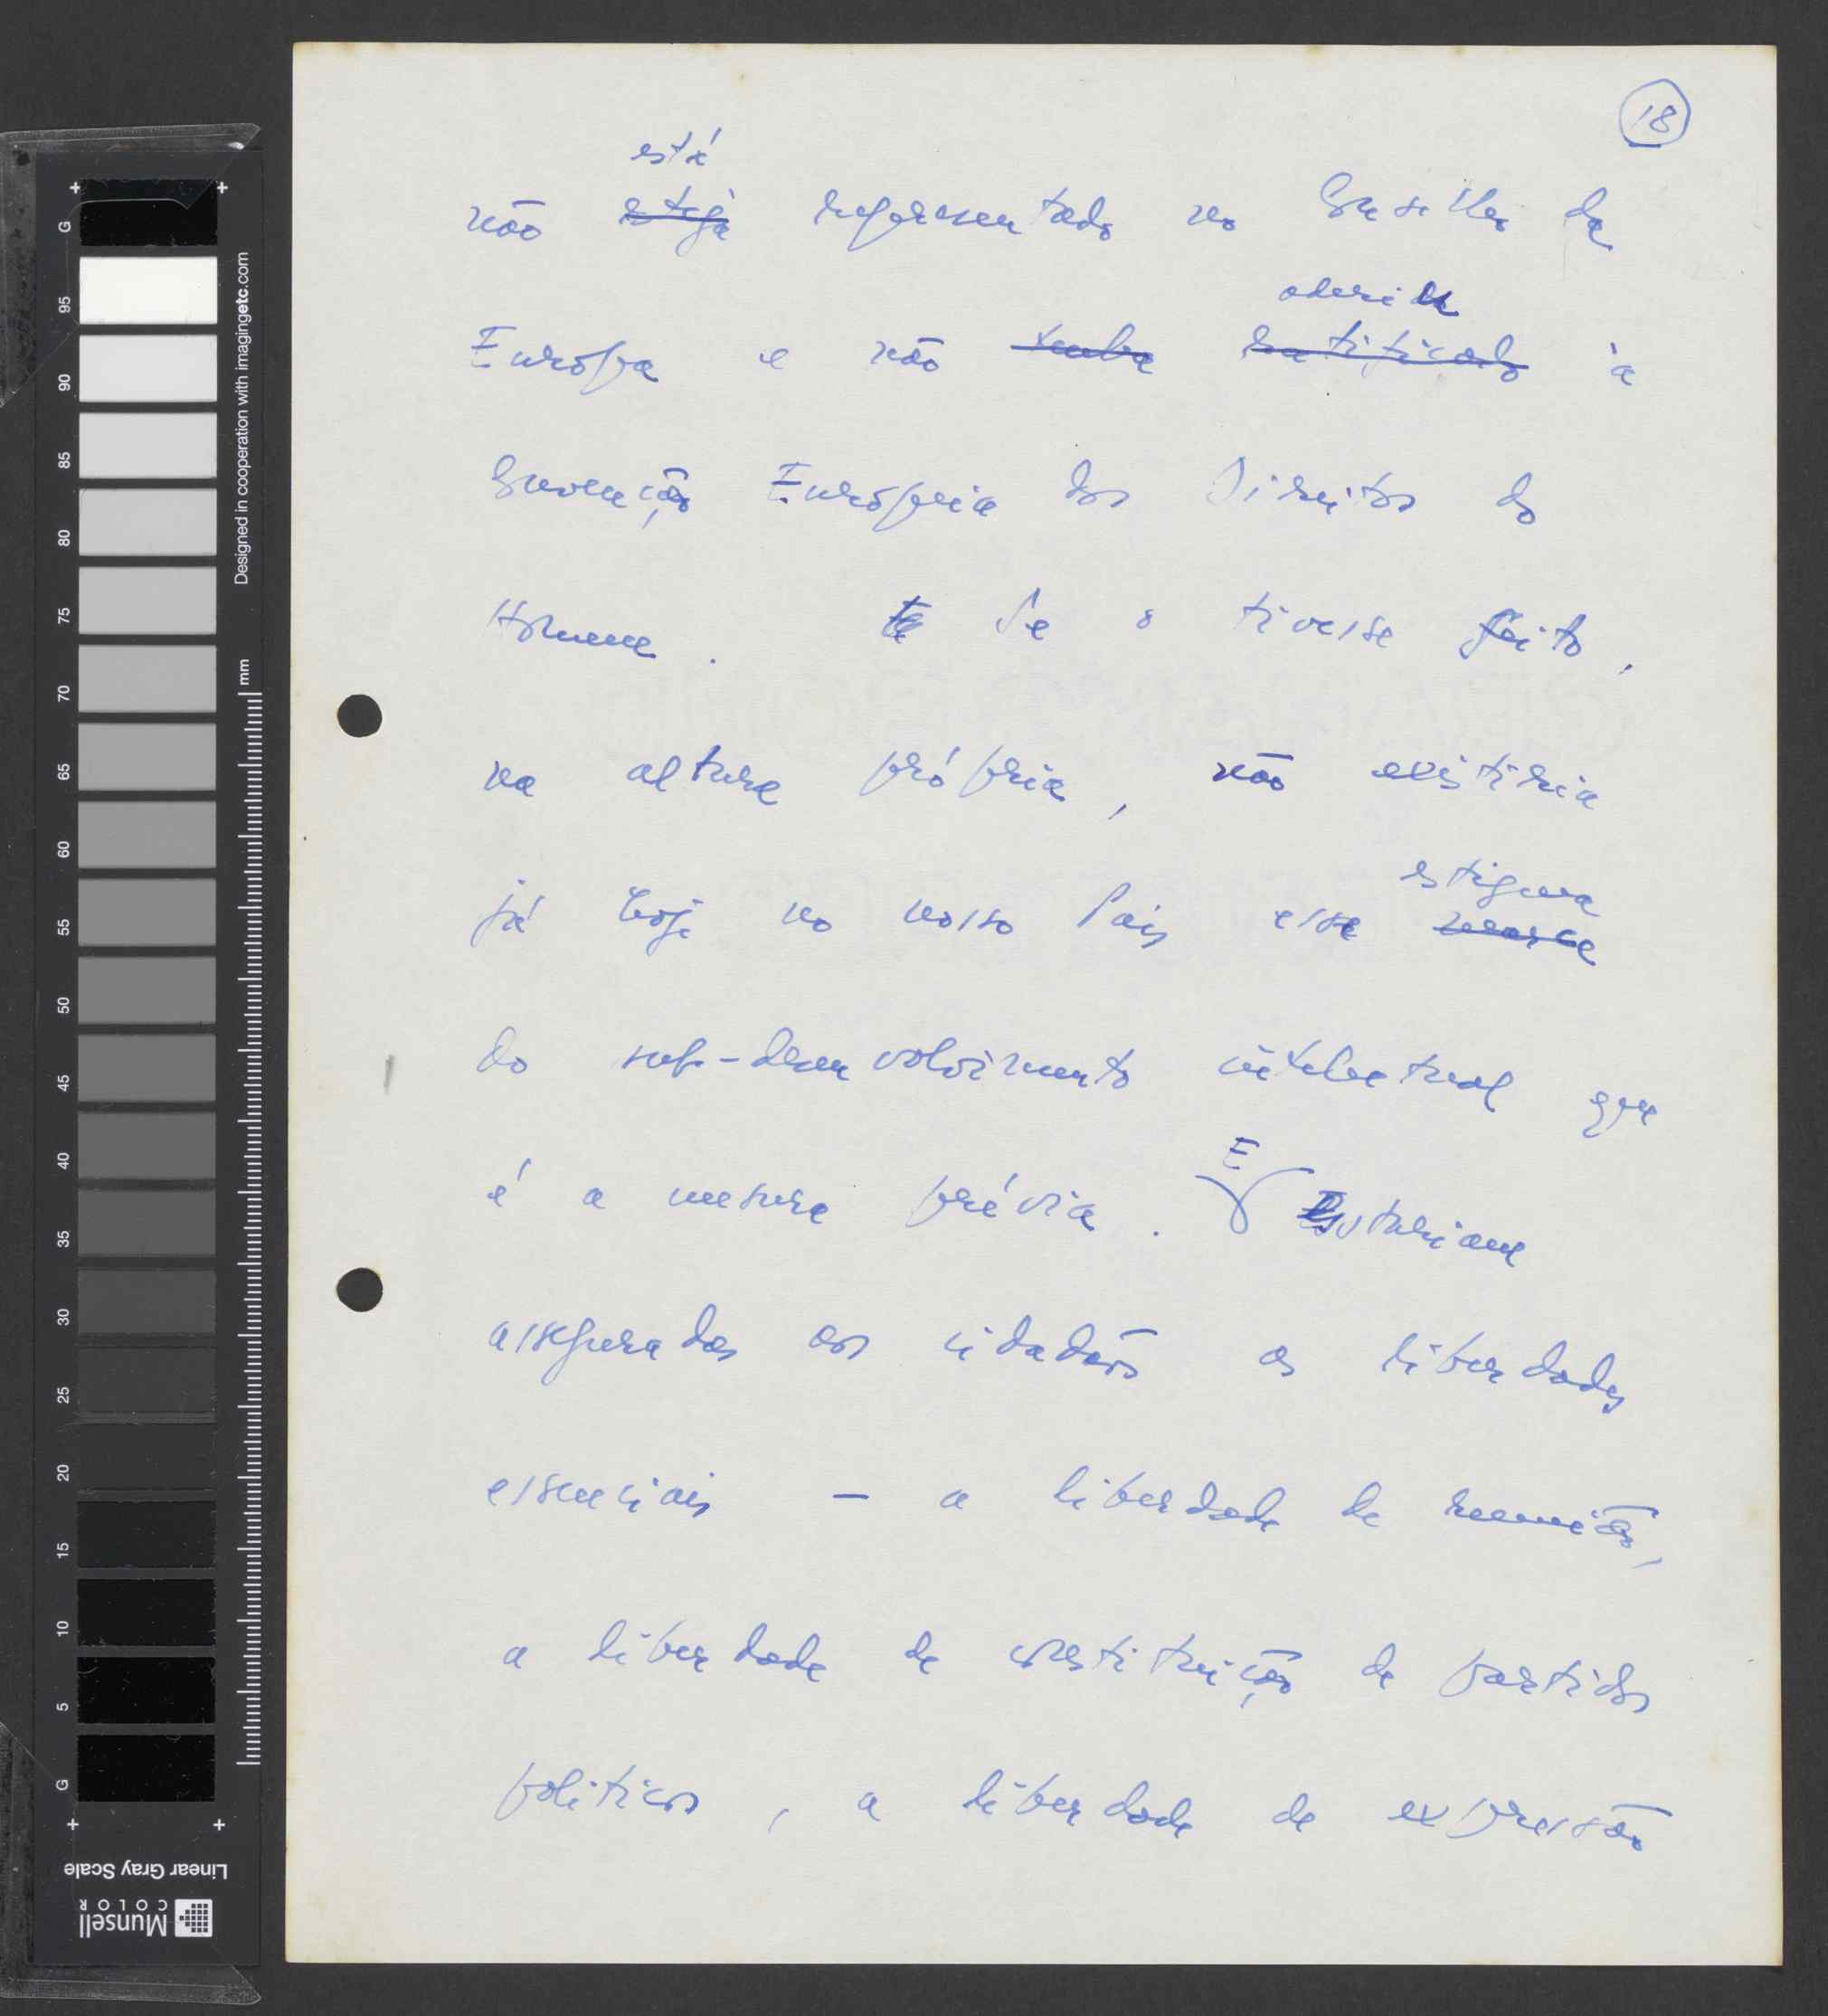 18
está
não esteja representado no Conselho da
aderiu
Europa e não tenha ratificado à
Convenção Europeia dos Direitos do
Homem. Se o tivesse feito,
na altura própria, não existiria
estigma
já hoje no nosso País esse marca
do sub-desenvolvimento intelectual que
é a censura prévia. E Estariam
asseguradas aos cidadãos as liberdades
essenciais - a liberdade de reunião,
a liberdade de constituição de partidos
políticos, a liberdade de expressão
G 95 90 85 80 75 70 65 60 55 50 45 40 35 30 25 20 15 10 5 G
Designed in cooperation with imagingetc.com
mm
Linear Gray Scale
Munsell
COLOR